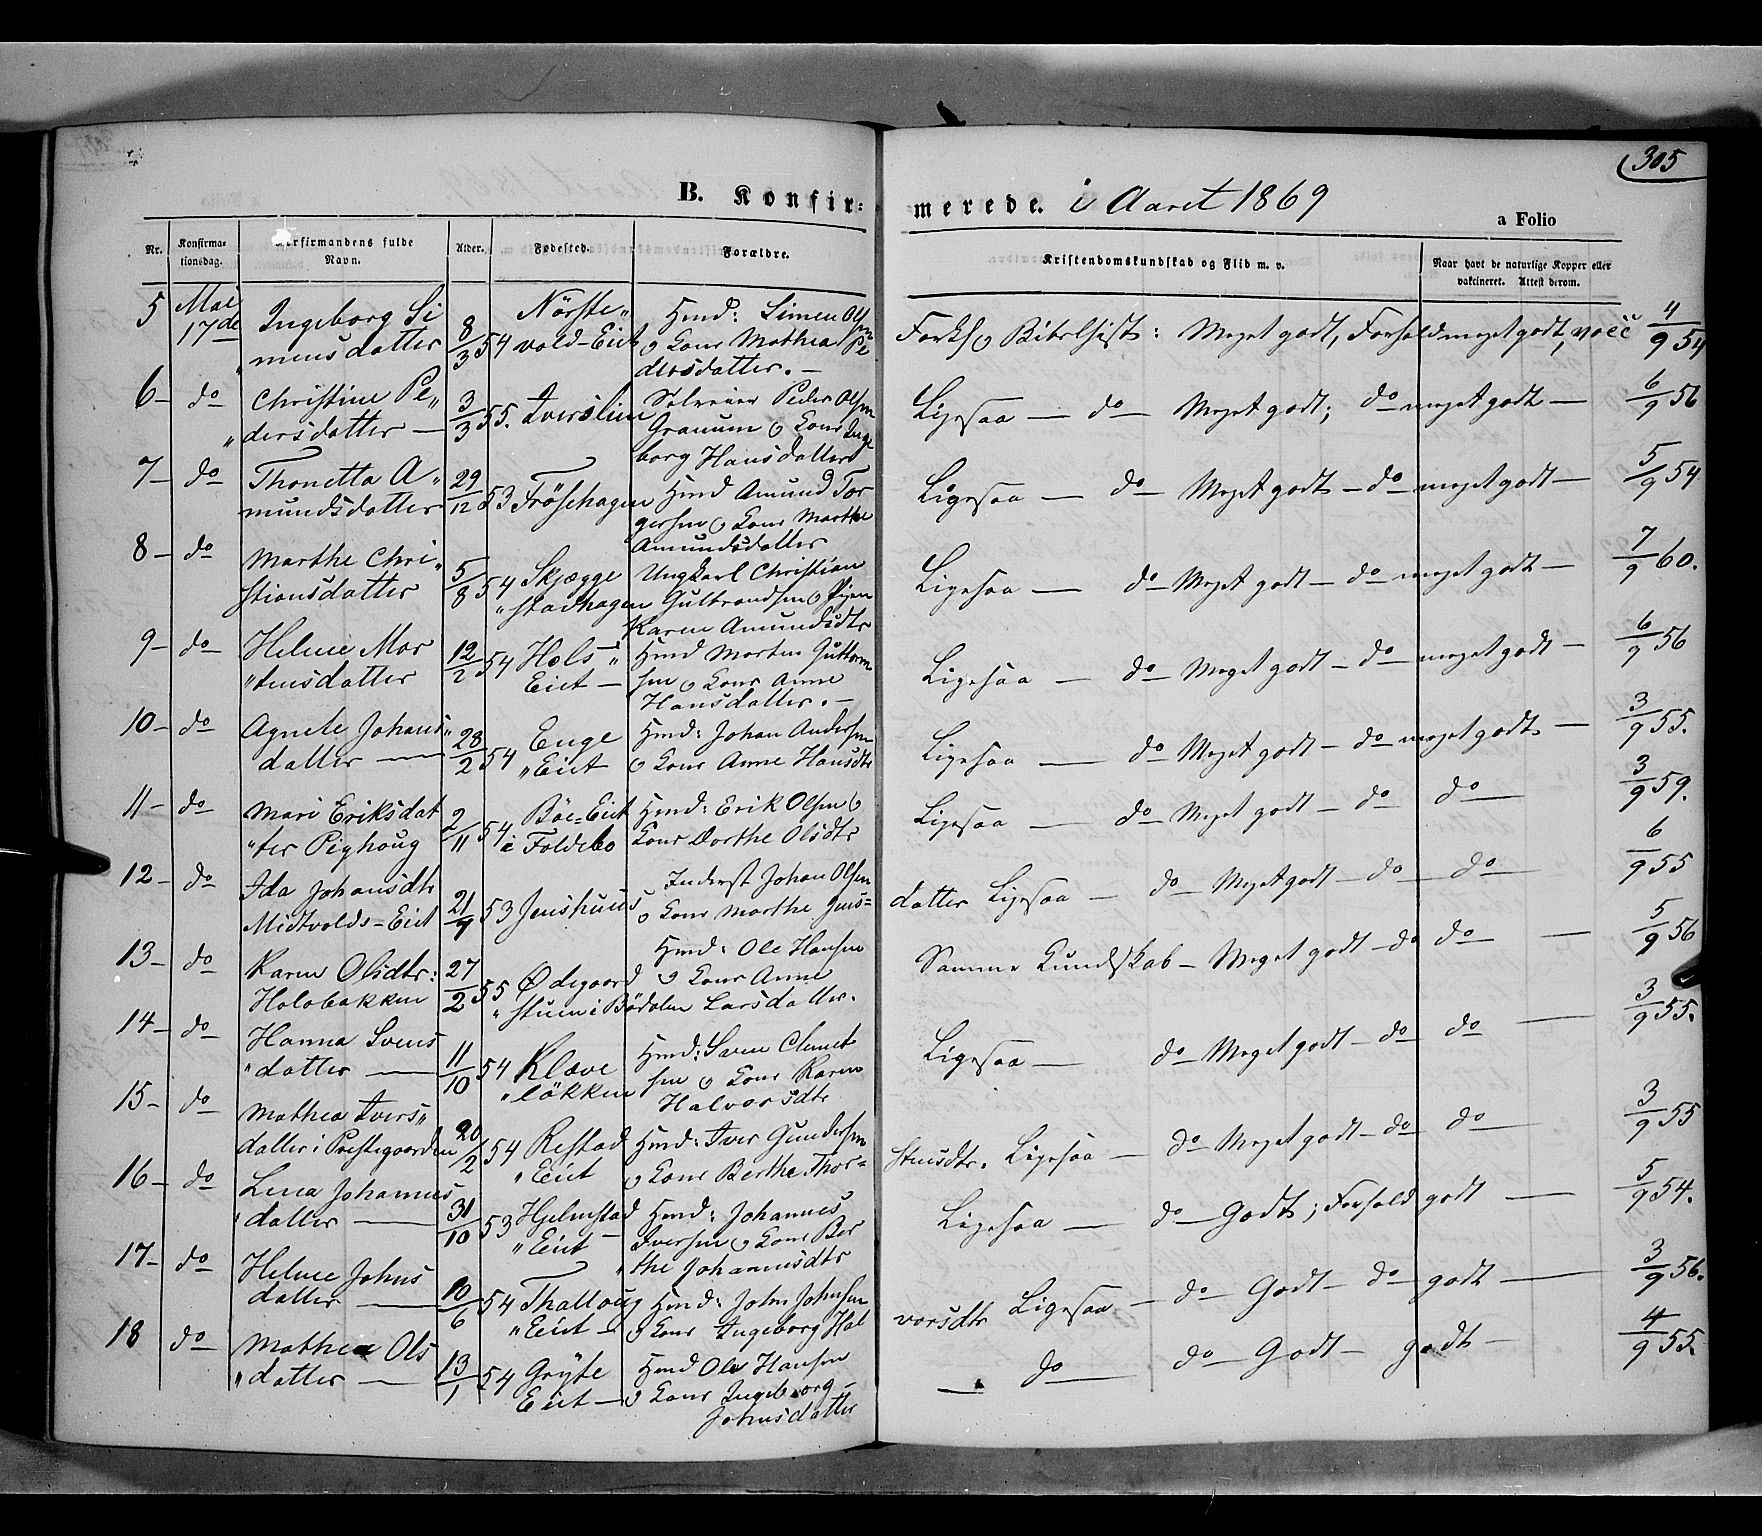 305
B. Konfir:
merede. i Aaret 1869
a Folio
Nr.
Konfirma-
tionsdag.
Konfirmandens fulde
Navn.
Alder.
Fødested.
Forældre.
Kristendomskundskab og Flid m. v.
Naar havt de naturlige Kopper eller
vaktineret. Attest derom.
5 Mai 17de Ingeborg Si
mensdatter 8/3 54 Nörste„
vold-Eiet Hmd: Simen Olsen
og Kone Mathea Pe
dersdatter. —
Meget godt, Forhold meget godt, vacc 4/9 54
6 — do Christine Pe„
„dersdatter — 3/3 55. Iverslien Selveier Peder Olsen
Granum og Kone Inge
borg Hansdatter
Ligesaa — do — Meget godt; do meget godt — 6/9 56
7 — do Thonetta A„
mundsdatter 29/12 53 Fröshagen Hmd Amund Tor
gersen og Kone Marthe
Amundsdatter
Ligesaa — do — Meget godt — do — meget godt — 5/9 54
8 — do Marthe Chri„
stiansdatter 5/8 54 Skjægge
„stadhagen Ungkarl Christian
Gulbrandsen og Pigen
Karen Amundsdtr
Ligesaa — do Meget godt — do — meget godt — 7/9 60.
9 — do Helene Mor
„tensdatter 12/2 54 Hols „
Eiet — Hmd Morten Guttorm
sen og Kone Anne
Hansdatter. —
Ligesaa — do — Meget godt — do — meget godt — 6/9 56
10 — do Agnete Johans„
datter — 28/2 54 Enge
„Eiet Hmd: Johan Andersen
og Kone Anne Hansdtr
Ligesaa — do — Meget godt — do — meget godt — 3/9 55.
11 — do Mari Eriksdat
„ter Pighoug 2/11 54 Böe-Eiet
i Foldebo Hmd: Erik Olsen og
Kone Dorthe Olsdtr
Ligesaa — do — Meget godt — do do — 3/9 59.
12 — do Ida Johansdtr
Midtvolds-Eiet 21/9 53 Jenshuus Inderst Johan Olsen
og Kone Marthe Jens=
datter Ligesaa — do — Meget godt — do — do — 6/9 55
13 — do Karen Olsdtr:
Holobakken 27/2 55 Ødegaard
„stuen i Bödalen Hmd: Ole Hansen
og Kone Anne
Larsdatter.
Samme Kundskab — Meget godt — do do — 5/9 56
14 — do Hanna Svens
„datter — 11/10 54 Klæve
„lökken Hmd: Sven Clemet
sen og Kone Karen
Halvorsdtr
Ligesaa — do — Meget godt — do — do — 3/9 55.
15 — do Mathea Ivers„
datter i Prestegaarden 20/2 54 Restad
„Eiet Hmd: Iver Gundersen
og Kone Berthe Thor=
stensdtr. Ligesaa — do — Meget godt — do — do — 3/9 55
16 — do Lina Johannes
„datter — 31/10 53 Hjelmstad
„Eiet — Hmd: Johannes
Iversen og Kone Ber
„the Johannesdtr
Ligesaa — do — Godt; Forhold godt — 5/9 54.
17 — do Helene Johns
datter — 10/6 54 Thalloug
„Eiet — Hmd: John Johnsen
og Kone Ingeborg Hal
vorsdtr Ligesaa — do — Godt — do — godt — 3/9 56.
18 do Mathea Ols
„datter — 13/1 54 Gryte
Eiet — Hmd Ole Hansen
og Kone Ingeborg
Johnsdatter
— do — do — Godt — godt — 4/9 55.